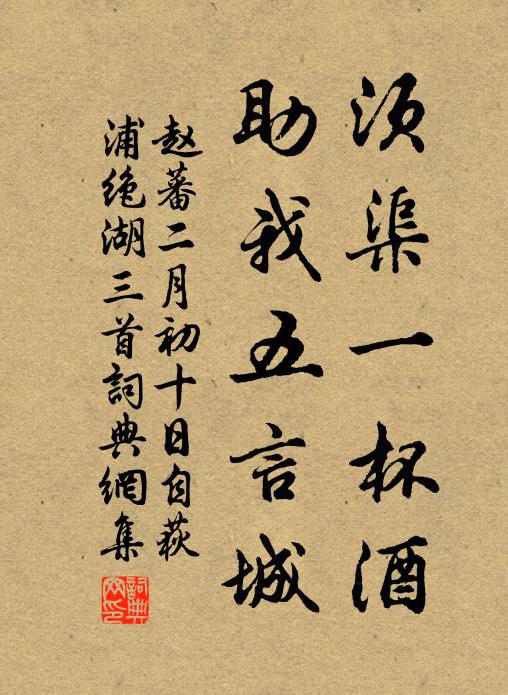 须渠一杯酒
助我五言城
赵蕃二月初十日自荻
浦绝湖三首詞典網集
詞典网印